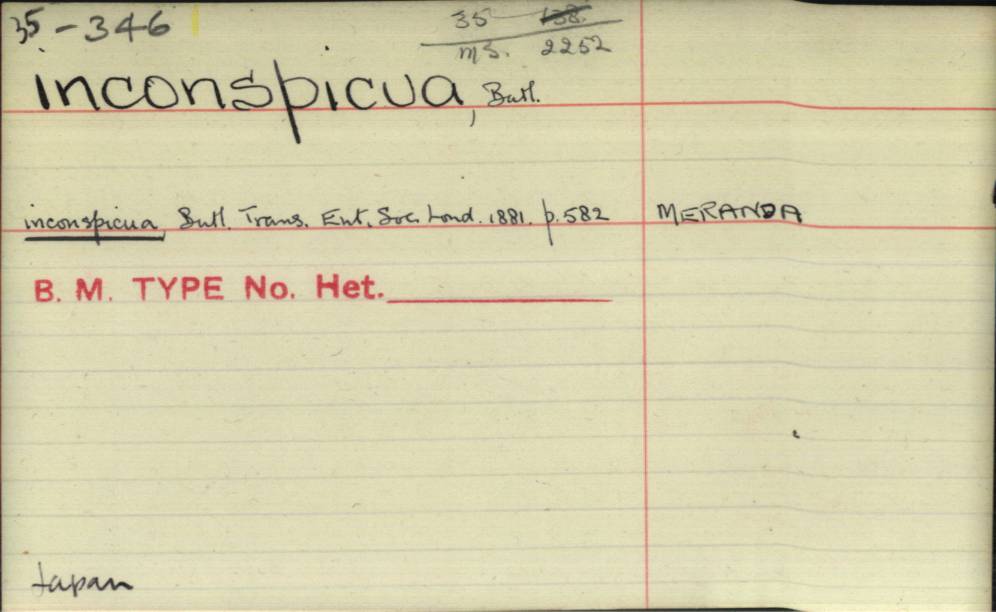 35-346
35 138.
M S. 2252
inconspicua, Butl.
inconspicua, Butl. Trans. Ent. Soc. Lond. 1881. p. 582 MERANDA
B. M. TYPE No. Het.
Japan